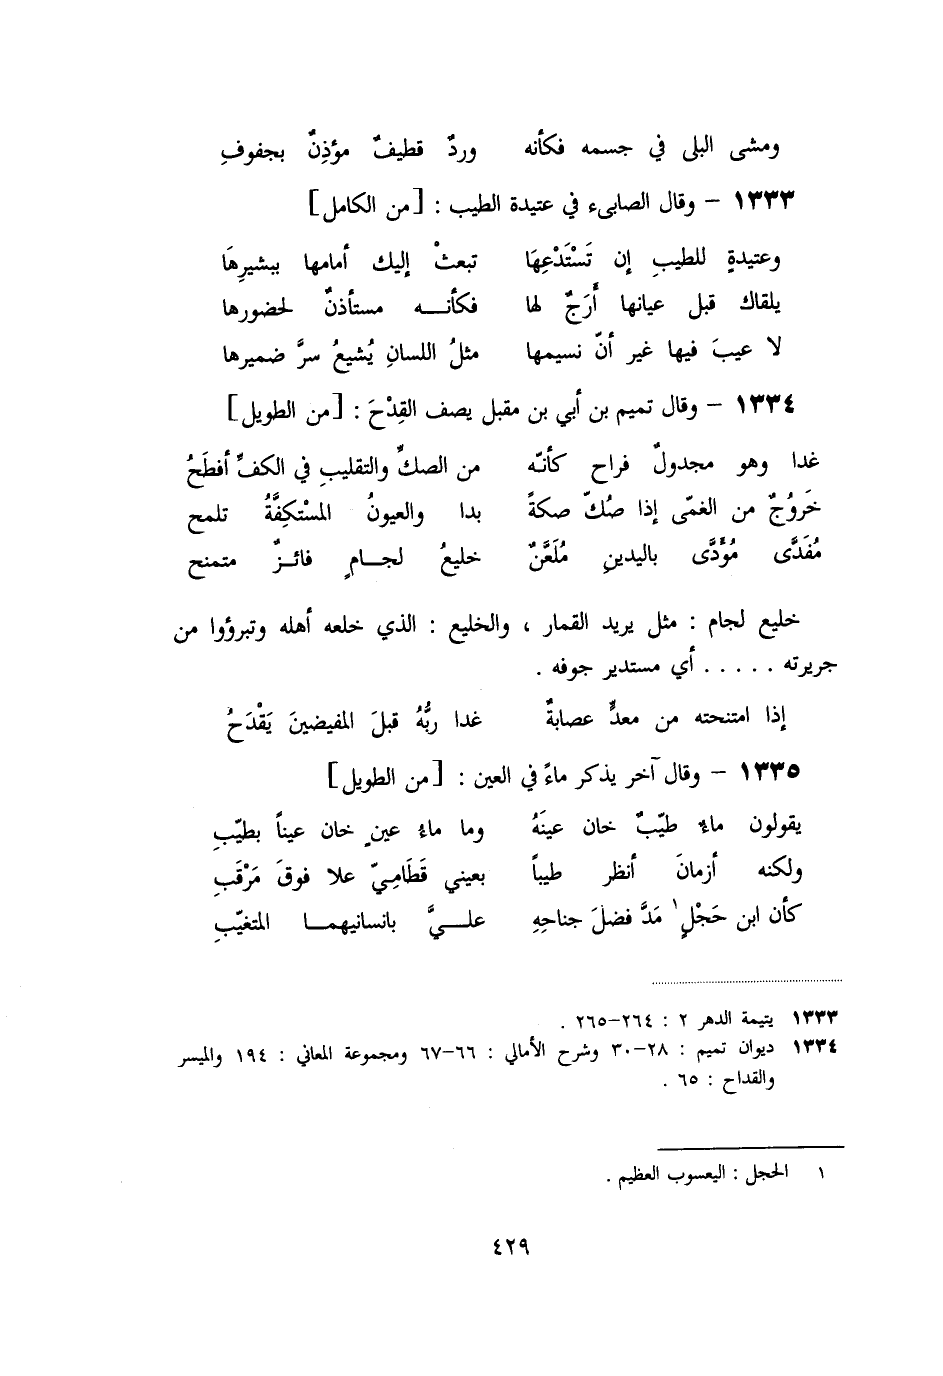 ومشى البلى في جسمه فكأنه وردٌ قطيفٌ مؤذِنٌ بجفوفِ
١٣٣٣ – وقال الصابىء في عتيدة الطيب : [من الكامل]
وعتيدةٍ للطيبِ إن تَسْتَدْعِهَا تبعثْ إليك أمامها ببشيرِهَا
يلقاك قبل عيانها أَرَجٌ لها فكأنــه مستأذنٌ لحضورها
لا عيبَ فيها غير أنّ نسيمها مثلُ اللسانِ يُشيعُ سرَّ ضميرها
١٣٣٤ – وقال تميم بن أبي بن مقبل يصف القِدْحَ : [من الطويل]
غدا وهو مجدولٌ فراح كأنّه من الصكِّ والتقليبِ في الكفِّ أفطَحُ
خَروُجٌ من الغمّى إذا صُكّ صكةً بدا والعيونُ المسْتكِفَّةُ تلمح
مُفَدَّى مُؤَدَّى باليدينِ مُلَعَّنٌ خليعُ لجـامٍ فائـزٌ متمنح
خليع لجام : مثل يريد القمار ، والخليع : الذي خلعه أهله وتبرؤوا من
جريرته . . . . . أي مستدير جوفه .
إذا امتنحته من معدٍّ عصابةٌ غدا ربُّهُ قبلَ المفيضينَ يَقْدَحُ
١٣٣٥ – وقال آخر يذكر ماءً في العين : [من الطويل]
يقولون ماءٌ طيّبٌ خان عينَهُ وما ماءُ عينٍ خان عيناً بطيّبِ
ولكنه أزمانَ أنظر طيباً بعيني قَطَامِيّ علا فوقَ مَرْقَبِ
كأن ابن حَجْلٍ١ مَدَّ فضلَ جناحِهِ علــيَّ بانسانيهمـا المتغيّبِ
١٣٣٣ يتيمة الدهر ٢ : ٢٦٤–٢٦٥ .
١٣٣٤ ديوان تميم : ٢٨–٣٠ وشرح الأمالي : ٦٦–٦٧ ومجموعة المعاني : ١٩٤ والميسر
والقداح : ٦٥ .
١ الحجل : اليعسوب العظيم .
٤٢٩